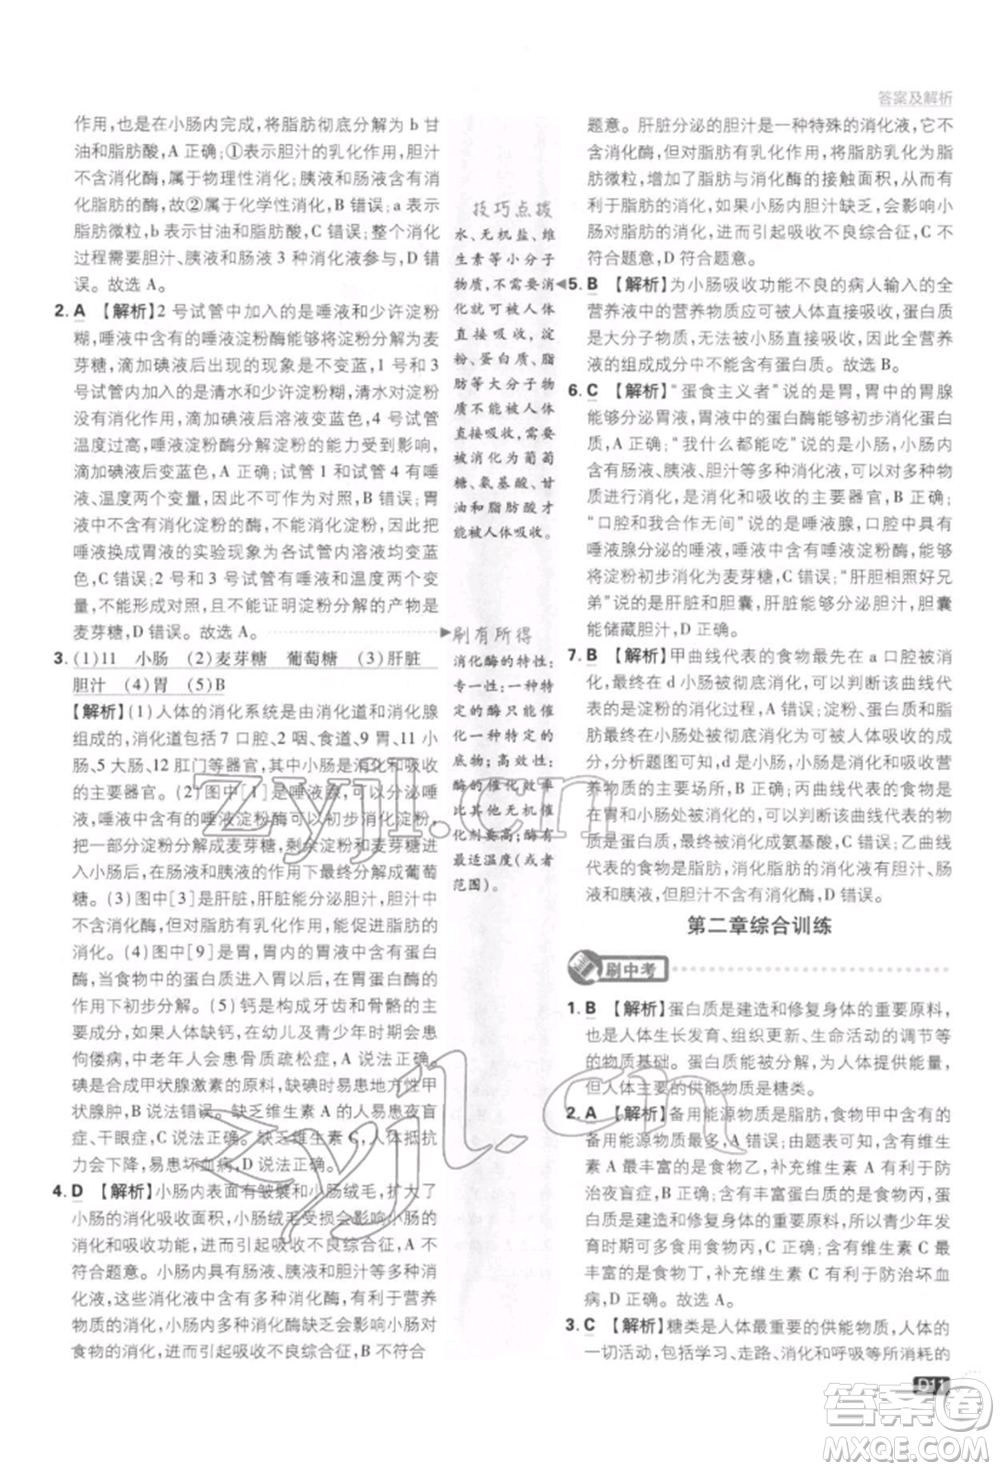 答案及解析
作用,也是在小肠内完成,将脂肪彻底分解为 b 甘
油和脂肪酸,A 正确;①表示胆汁的乳化作用,胆汁
不含消化酶,属于物理性消化;胰液和肠液含有消化
脂肪的酶,故②属于化学性消化,B 错误;a 表示
脂肪微粒,b 表示甘油和脂肪酸,C 错误;整个消化
过程需要胆汁、胰液和肠液 3 种消化液参与,D 错
误。故选 A。
2. A 【解析】2 号试管中加入的是唾液和少许淀粉
糊,唾液中含有的唾液淀粉酶能将淀粉分解为麦
芽糖,滴加碘液后出现的现象是不变蓝,1 号和 3
号试管内加入的是清水和少许淀粉糊,清水对淀粉
没有消化作用,滴加碘液后溶液变蓝色,4 号试管
温度过高,唾液淀粉酶分解淀粉的能力受到影响,
滴加碘液后变蓝色,A 正确;试管 1 和试管 4 有唾
液、温度两个变量,不能作为对照,B 错误;胃
液中不含有消化淀粉的酶,不能消化淀粉,因此把
唾液换成胃液的实验现象是各试管内溶液均变蓝
色,C 错误;2 号和 3 号的变量有唾液和温度两个变
量,不能形成对照,且不能证明淀粉分解的产物是
麦芽糖,D 错误。故选 A。
3. (1)11 小肠 (2)麦芽糖 葡萄糖 (3)肝脏
胆汁 (4)胃 (5)B
【解析】(1)人体的消化系统是由消化道和消化腺
组成的,消化道包括 7 口腔、2 咽、食道、9 胃、11 小
肠、5 大肠、12 肛门等器官,其中小肠是消化和吸收
的主要器官。(2)图中[1]是唾液腺,可以分泌唾
液,唾液中含有的唾液淀粉酶能够初步消化淀粉,
将一部分淀粉分解成麦芽糖,剩余淀粉和麦芽糖进
入小肠后在肠液和胰液的作用下最终消化成葡萄
糖。(3)图中[3]是肝脏,肝脏能够分泌胆汁,胆汁中
不含消化酶,但对脂肪有乳化作用,能促进脂肪的分
解。(4)图中[9]是胃,胃内的胃液中含有蛋白
酶,当食物中的蛋白质进入胃以后,能在胃蛋白酶的
作用下初步分解。(5)钙是构成牙齿和骨骼的主要
成分,如果人体缺钙,在幼儿及青少年时期会患
佝偻病,中老年人会患骨质疏松症,A 正确;碘是
合成甲状腺激素的原料,人体缺碘会患地方性甲
状腺肿,B 错误;缺乏维生素 A 的人易患夜盲
症、干眼症,C 正确。缺乏维生素 C,人体抵抗
力会下降,易患坏血病,D 正确。
4. D 【解析】小肠内表面有皱襞和小肠绒毛,扩大了
小肠的消化吸收面积,小肠绒毛受损会影响小肠的
消化和吸收功能,进而引起吸收不良综合征,A 符
合题意。小肠内具有肠液、胰液和胆汁等多种消
化液,这些消化液中含有多种消化酶,有利于营养
物质的消化,如果多种消化酶缺乏则会影响小肠对
食物的消化,进而引起吸收不良综合征,B 不符合
技巧点拨
水、无机盐、维
生素等小分子
物质,不经消
化就可被人体
直接吸收,淀
粉、蛋白质、脂
肪等大分子物
质不能被人体
直接吸收,需要
被消化为葡萄
糖、氨基酸、甘
油和脂肪酸才
能被人体吸收。
刷有所得
消化酶的特性:
专一性:一种特
定的酶只能催
化一种特定的
底物;高效性:
酶的催化效率
比其他无机催
化剂要高;酶有
最适温度(或者
范围)。
题意。肝脏分泌的胆汁是一种特殊的消化液,它不
含消化酶,但对脂肪有乳化作用,能将脂肪乳化为脂
肪微粒,增加了脂肪与消化酶的接触面积,从而
有利于脂肪的消化,如果小肠内胆汁缺乏,则会影响
小肠对脂肪的消化,进而引起吸收不良综合征,C 不
符合题意,D 符合题意。
5. B 【解析】为小肠吸收功能不良的病人输入的全
营养液中的营养物质应可被人体直接吸收,蛋白质
是大分子物质,不能被人体直接吸收,因此该营养
液的组成成分中不能含有蛋白质。故选 B。
6. C 【解析】“蛋食主义者”说的是胃,胃中的胃腺
能够分泌胃液,胃液中的蛋白酶能够初步消化蛋白
质,A 正确;“我什么都能吃”说的是小肠,小肠内
含有肠液、胰液、胆汁等多种消化液,可以对多种物
质进行消化,是消化和吸收的主要器官,B 正确;
“口腔和我合作无间”说的是唾液腺,口腔中具有
唾液腺分泌的唾液,唾液中含有的唾液淀粉酶能够
将淀粉初步消化为麦芽糖,C 错误;“肝胆相照好兄
弟”说的是肝脏和胆囊,肝脏能够分泌胆汁,胆囊
能够储藏胆汁,D 正确。
7. B 【解析】甲曲线代表的食物最先在 a 口腔被消
化,最终在 d 小肠被彻底消化,可以判断该曲线代
表的食物是淀粉,A 错误;淀粉、蛋白质和脂肪
都是组成细胞的主要有机物,可以为细胞提供能
量,分析题图可以判断,乙曲线代表的食物是
脂肪,B 正确;丙曲线代表的食物
在胃和小肠被消化,可以判断丙曲线代表的食物是
蛋白质,最终被消化成氨基酸,C 错误;乙曲线代表
的食物是脂肪,参与脂肪消化的消化液有胆汁、
肠液和胰液,但是胆汁不含消化酶,D 错误。
第二章综合训练
刷中考
1. B 【解析】蛋白质是建造和修复身体的重要原料,
也是人体生长发育、组织更新、生命活动的调节等
的物质基础。蛋白质能被分解,为人体提供能量,
但人体主要的供能物质是糖类。
2. A 【解析】备用能源物质是脂肪,食物甲中含有的
供能物质最多,A 错误;由题表可知,含有维生素
A 最丰富的是食物乙,补充维生素 A 可以防治
夜盲症,B 正确;含有丰富蛋白质的是食物丙,蛋白
质是建造和修复身体的重要原料,所以青少年发
育时期可多食用食物丙,C 正确;含有维生素 C 最
丰富的是食物丁,补充维生素 C 有利于防治坏血
病,D 正确。故选 A。
3. C 【解析】糖类是人体最重要的供能物质,人体的
一切活动,包括学习、走路、消化和呼吸等所消耗的
D11
zyjl.cn
zyjl.cn
答案圈
MXQE.COM